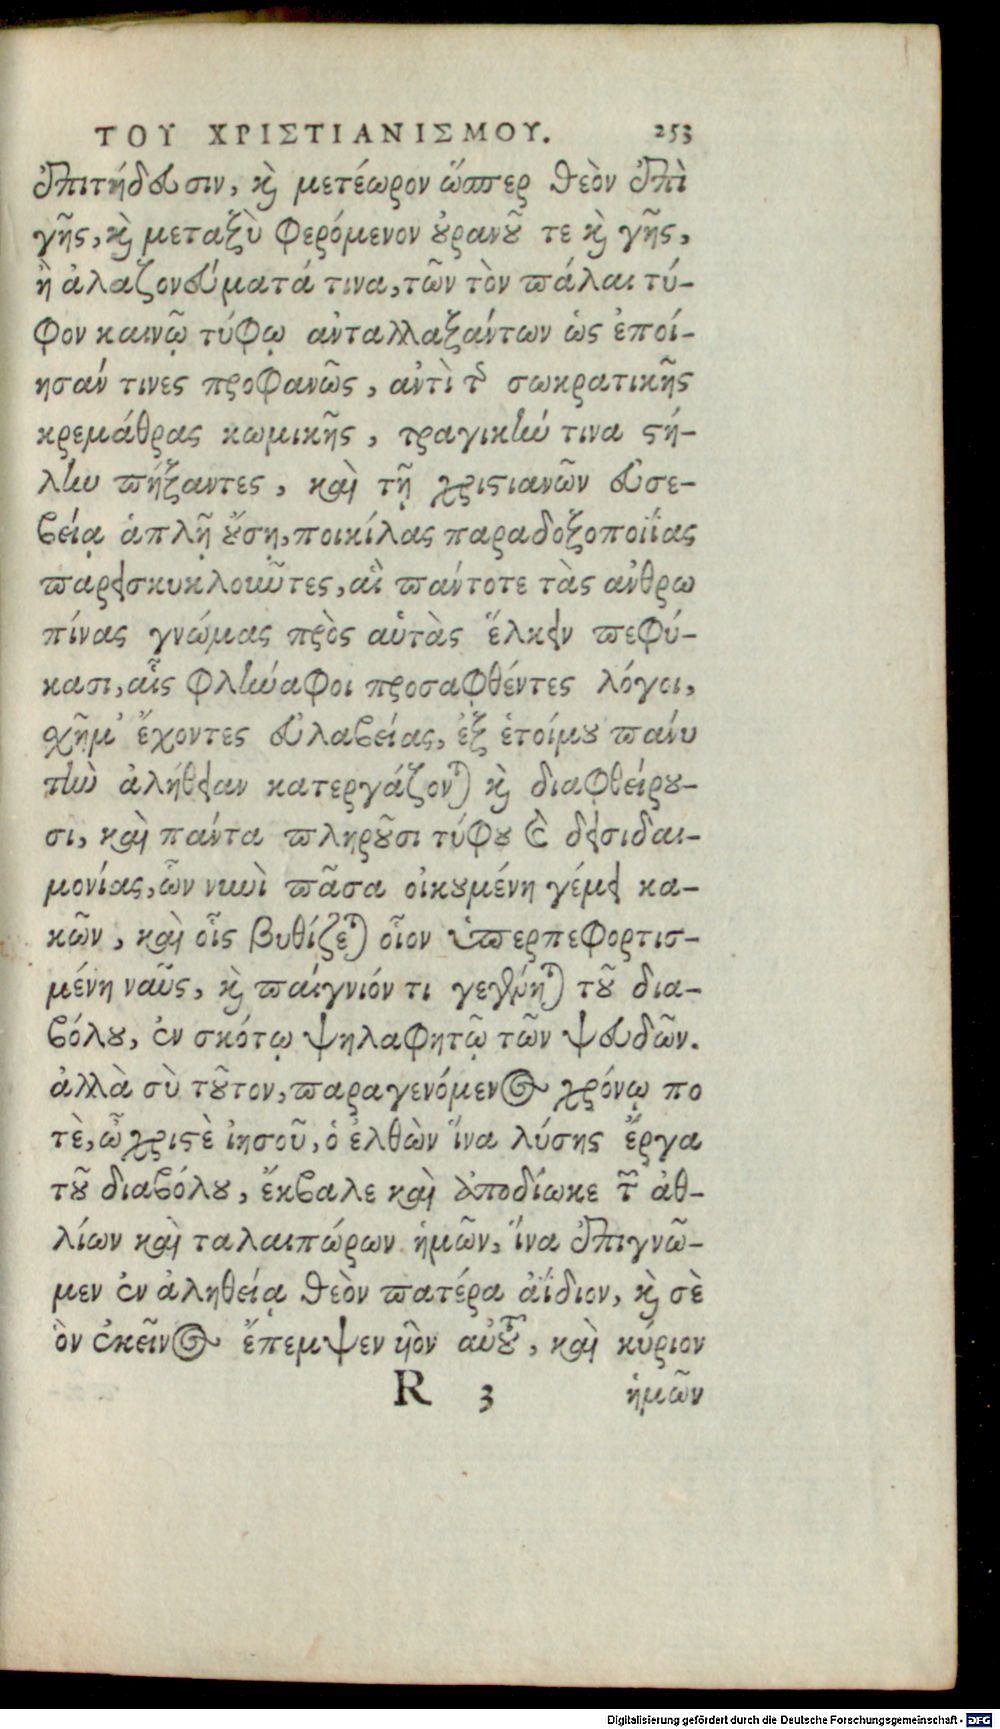 ΤΟΥ ΧΡΙΣΤΙΑΝΙΣΜΟΥ. 253
ἐπιτήδευσιν, καὶ μετέωρον ὥσπερ θεὸν ἐπὶ
γῆς, καὶ μεταξὺ φερόμενον οὐρανοῦ τε καὶ γῆς,
ἢ ἀλαζονεύματά τινα, τῶν τὸν πάλαι τύ-
φον καινῷ τύφῳ ἀνταλλαξάντων ὡς ἐποί-
ησάν τινες προφανῶς, ἀντὶ τῆς σωκρατικῆς
κρεμάθρας κωμικῆς, τραγικήν τινα στή-
λην πήξαντες, καὶ τῇ χριστιανῶν εὐσε-
βείᾳ ἁπλῇ οὔσῃ, ποικίλας παραδοξοποιΐας
παρεισκυκλοῦντες, αἳ πάντοτε τὰς ἀνθρω
πίνας γνώμας πρὸς αὑτὰς ἕλκειν πεφύ-
κασι, αἷς φλήναφοι προσαφθέντες λόγοι,
σχῆμ' ἔχοντες εὐλαβείας, ἐξ ἑτοίμου πάνυ
τὴν ἀλήθειαν κατεργάζονται καὶ διαφθείρου-
σι, καὶ πάντα πληροῦσι τύφου καὶ δεισιδαι-
μονίας, ὧν νυνὶ πᾶσα οἰκουμένη γέμει κα-
κῶν, καὶ οἷς βυθίζεται οἷον ὑπερπεφορτισ-
μένη ναῦς, καὶ παίγνιόν τι γεγένηται τοῦ δια-
βόλου, ἐν σκότῳ ψηλαφητῷ τῶν ψευδῶν.
ἀλλὰ σὺ τοῦτον, παραγενόμενος χρόνῳ πο
τὲ, ὦ χριστὲ ἰησοῦ, ὁ ἐλθὼν ἵνα λύσῃς ἔργα
τοῦ διαβόλου, ἔκβαλε καὶ ἀποδίωκε τῶν ἀθ-
λίων καὶ ταλαιπώρων ἡμῶν, ἵνα ἐπιγνῶ-
μεν ἐν ἀληθείᾳ θεὸν πατέρα ἀΐδιον, καὶ σὲ
ὃν ἐκεῖνος ἔπεμψεν υἱὸν αὐτοῦ, καὶ κύριον
R 3 ἡμῶν
Digitalisierung gefördert durch die Deutsche Forschungsgemeinschaft - DFG